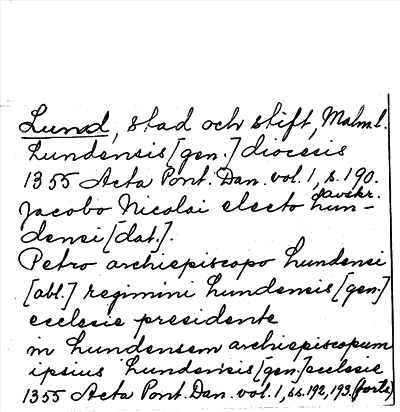 Lund, stad och stift, Malm.l.
Lundensis [gen.] diocesis
1355 Acta Pont. Dan. vol. 1, s. 190.
avskr.
Jacobo Nicolai electo Lun-
densi [dat.].
Petro archiepiscopo Lundensi
[abl.] regimini Lundensis [gen.]
ecclesie presidente
in Lundensem archiepiscopum
ipsius Lundensis [gen.] ecclesie
1355 Acta Pont. Dan. vol. 1, s.s. 192, 193. (forts.)